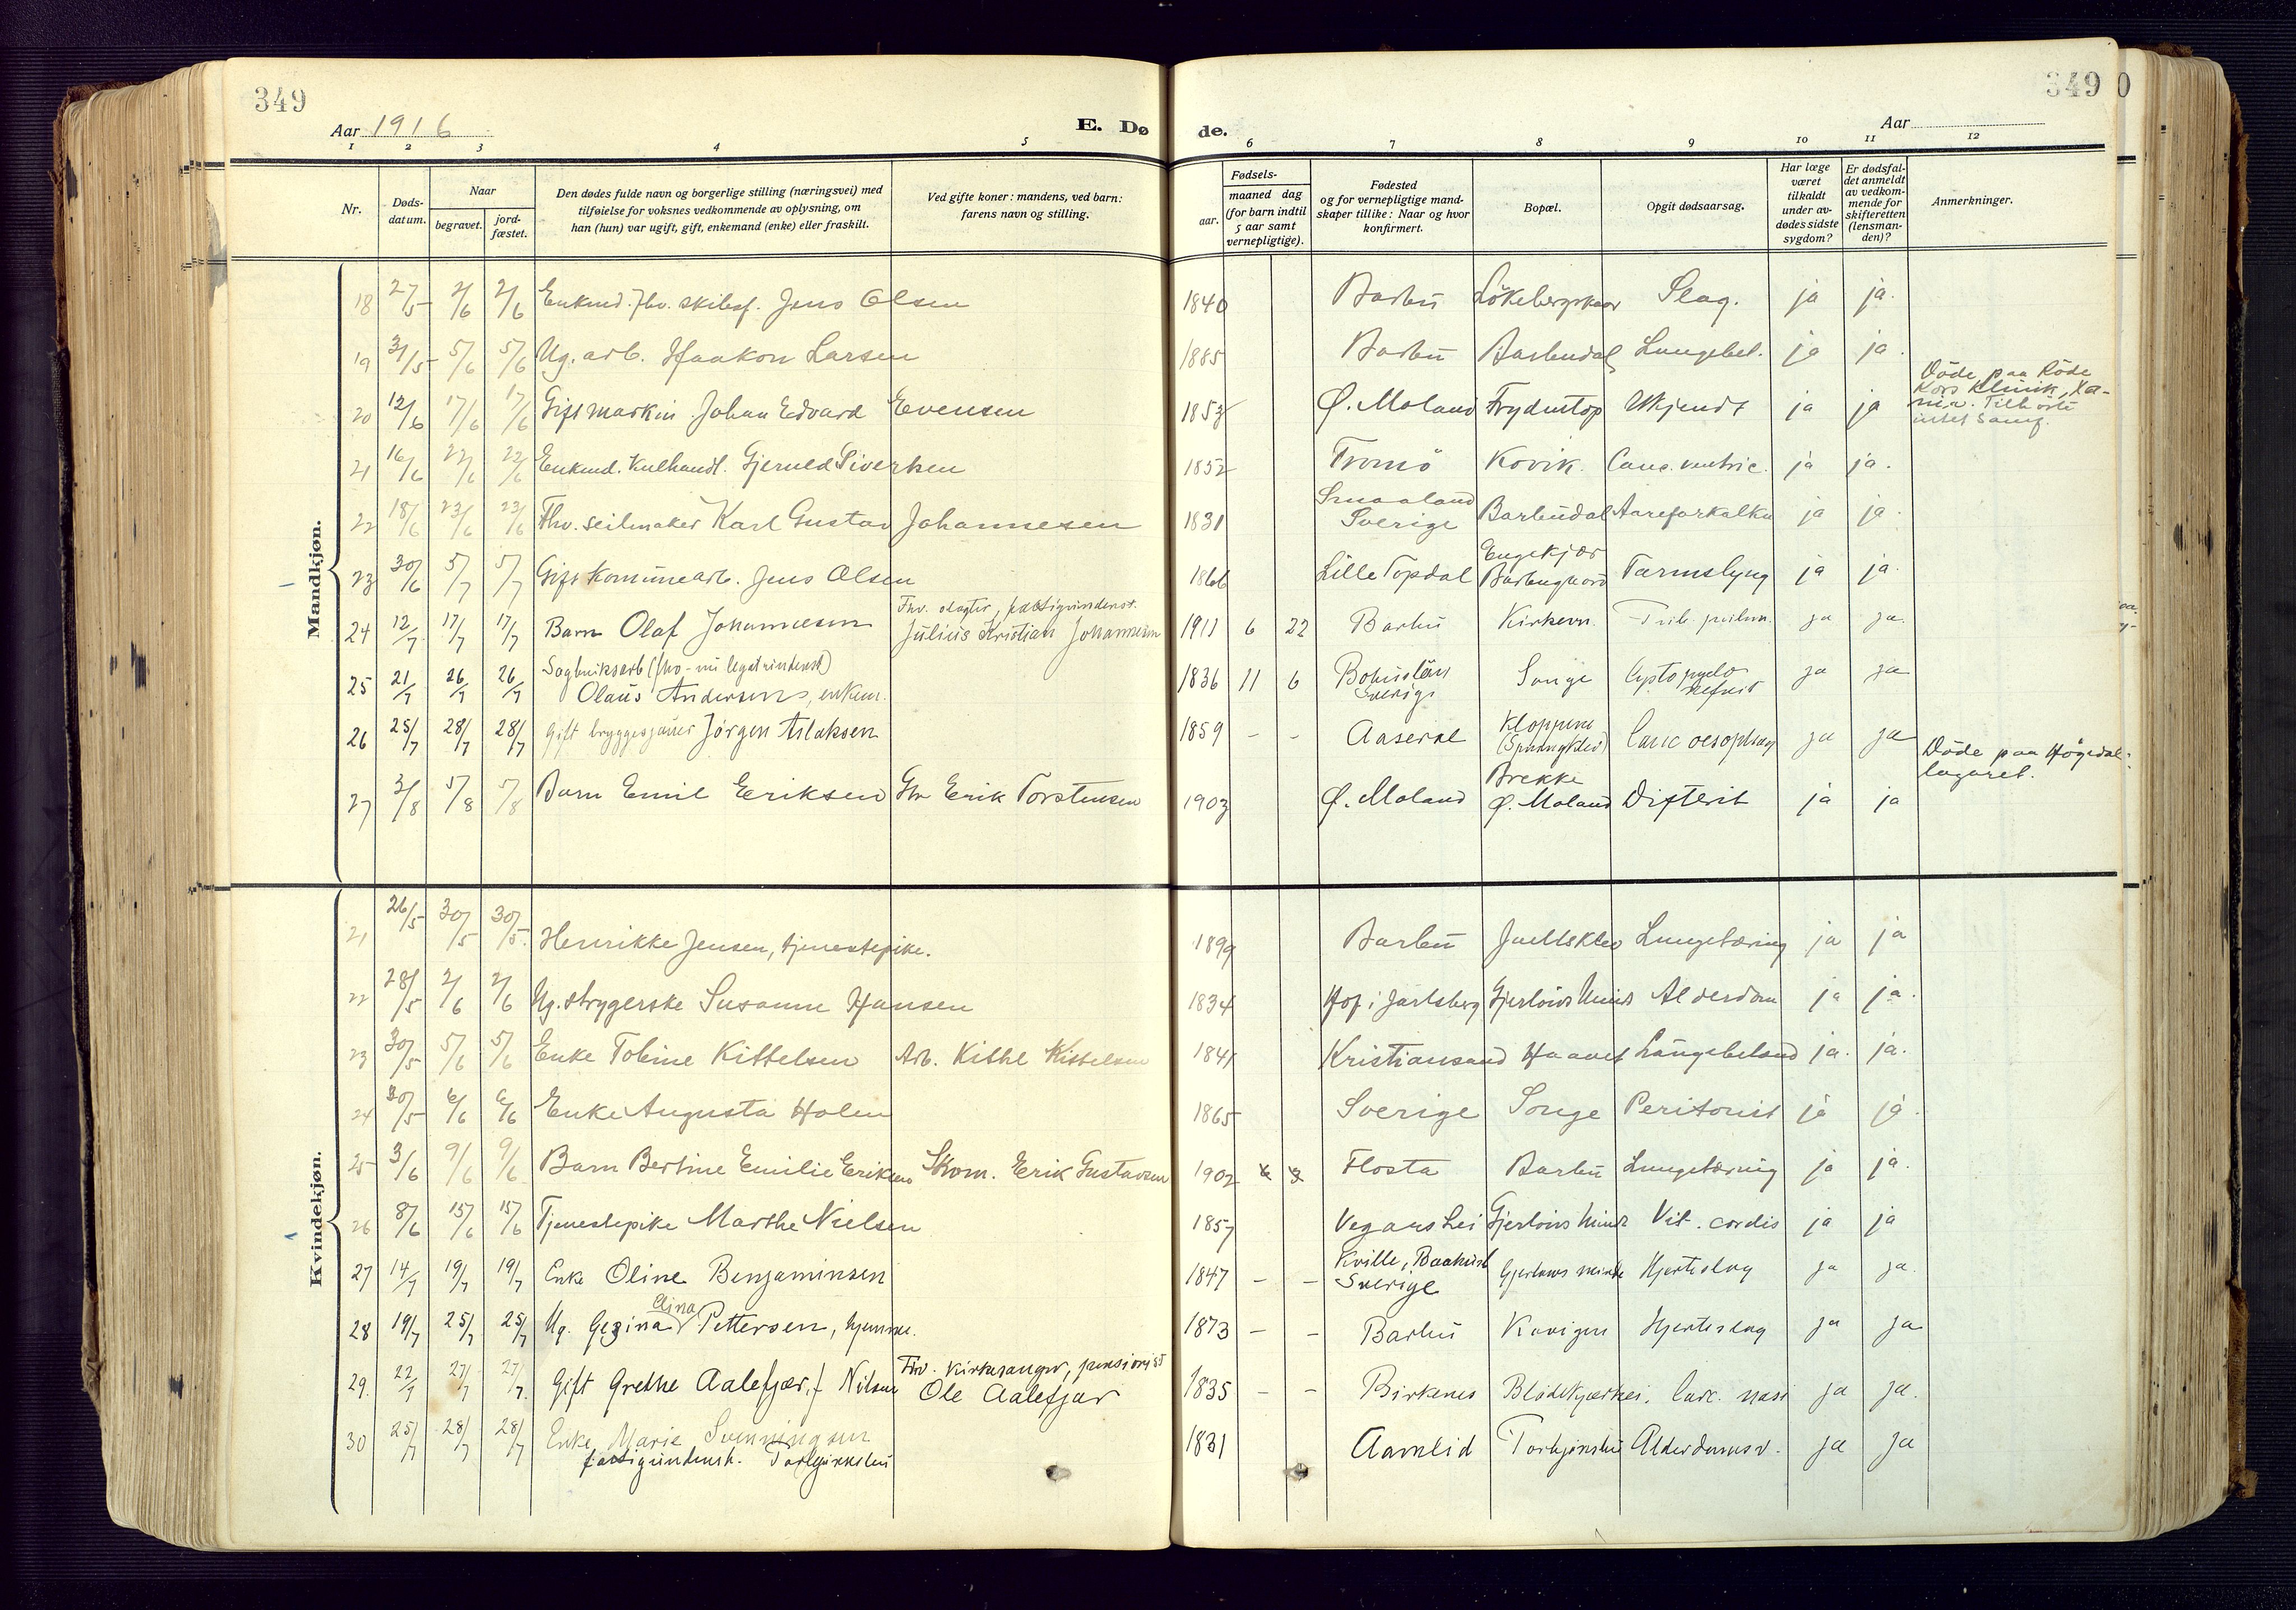 349
349
0
Aar 1916
E. Dø
de.
Aar
1 2 3 4 5 6 7 8 9 10 11 12
Nr.
Døds-
datum.
Naar
begravet.
jord-
fæstet.
Den dødes fulde navn og borgerlige stilling (næringsvei) med
tilføielse for voksnes vedkommende av oplysning, om
han (hun) var ugift, gift, enkemand (enke) eller fraskilt.
Ved gifte koner: mandens, ved barn:
farens navn og stilling.
Fødsels-
aar.
maaned dag
(for barn indtil
5 aar samt
vernepligtige).
Fødested
og for vernepligtige mand-
skaper tillike: Naar og hvor
konfirmert.
Bopæl.
Opgit dødsaarsag.
Har læge
været
tilkaldt
under av-
dødes sidste
sygdom?
Er dødsfal-
det anmeldt
av vedkom-
mende for
skifteretten
(lensman-
den)?
Anmerkninger.
Mandkjøn.
18 27/5 2/6 2/6 Enkmd. fhv. skibsf. Jens Olsen 1840 Barbu Slag. ja ja.
19 31/5 5/6 5/6 Ug. arb. Haakon Larsen 1885 Barbu Barbudal Lungebet. ja ja.
20 12/6 17/6 17/6 Gift maskin. Johan Edvard Evensen 1853 Ø. Moland Frydentop Ukjendt ja ja
Døde paa Røde
Kors Klinik, Xa-
nia. Tilhørte
intet samf.
21 16/6 22/6 22/6 Enkmd. Kulhandl. Gjerued Siversen 1852 Tromø Kovik. Canc. ventric. ja ja.
22 18/6 23/6 23/6 Fhv. seilmaker Karl Gustav Johannesen 1831 Smaaland
Sverige Barbudal Aareforkalkn ja ja.
23 30/6 5/7 5/7 Gift Komunearb. Jens Olsen 1866 Lille Topdal Engekjær
Barbugaard Tarmslyng ja ja.
24 12/7 17/7 17/7 Barn Olaf Johannesen Fhv. slagter, fattigunderst.
Julius Kristian Johannesen 1911 6 22 Barbu Kirkevn. ja ja.
25 21/7 26/7 26/7 Sagbruksarb (fhv - nu legatunderst)
Olaus Andersen, enkem. 1836 11 6 Bohuslän
Sverige Songe Cystopyelo
nefrit ja ja
26 25/7 28/7 28/7 Gift bryggesjauer Jørgen Aslaksen 1859 - - Aaseral Kloppene
Canc oesophag ja ja
27 3/8 5/8 5/8 Barn Emil Eriksen Erik Torstensen 1903 Ø. Moland Brekke
Ø. Moland Difterit ja ja
Døde paa Høgedal-
lazaret.
Kvindekjøn.
21 26/5 30/5 30/5. Henrikke Jensen, tjenestepike. 1899 Barbu Juellsklev Lungetæring ja ja
22 28/5 2/6 2/6 Ug. strygerske Susanne Hansen 1834 Hof i Jarlsberg Gjerløws Minde Alderdom ja ja.
23 30/5 5/6 5/6 Enke Tobine Kittelsen Arb. Kittel Kittelsen 1841 Kristiansand Haavet Lungebetænd ja. ja.
24 30/5 6/6 6/6 Enke Augusta Holm 1865 Sverige Songe Peritonit ja ja.
25 3/6 9/6 9/6 Barn Bertine Emilie Eriksen Skom. Erik Gustavsen 1902 Flosta Barbu Lungetæring ja ja.
26 8/6 15/6 15/6 Tjenestepike Marthe Nielsen 1857 Vegaarshei Gjerløws Minde Vit. cordis ja ja
27 14/7 19/7 19/7 Enke Oline Benjaminsen 1847 - - Kville, Baahusl
Sverige Gjerløws minde Hjerteslag ja ja.
28 19/7 25/7 25/7 Ug. Gezina Aina Pettersen, hjemme. 1873 - - Barbu Kovigen Hjerteslag ja ja
29. 22/7 27/7 27/7. Gift Grethe Aalefjær, f Nilsen Fhv. kirkesanger, pensionist
Ole Aalefjær 1835 - - Birkenes Blødekjærhei. Carc. nasi ja ja.
30 25/7 28/7 28/7 Enke Marie Svenningsen
fattigunderst. Torbjørnsbu 1831 Aamlid Torbjørnsbu Alderdomssv. ja ja